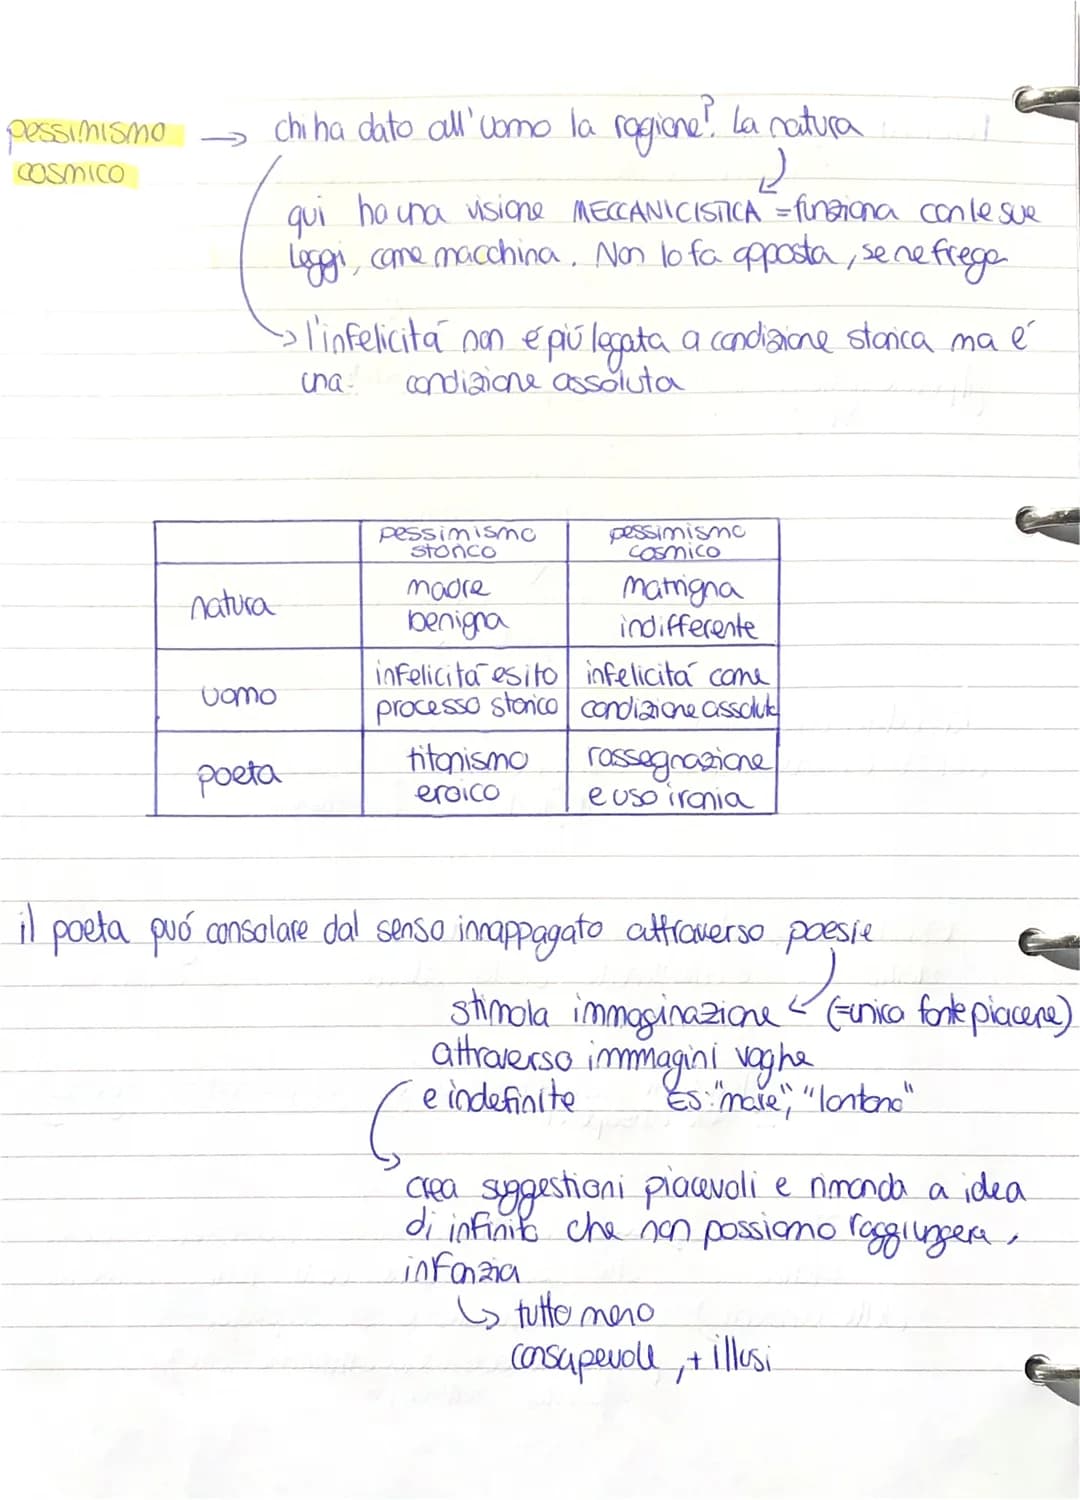 pessimismo → chi ha dato all'uomo la ragione? La natura
cosmico
qui ha una visione MECCANICISTICA = funziona con le sue
leggi, come macchina. Non lo fa apposta, se ne frega
→ l'infelicitá non é piú legata a condizione storica ma é
una condizione assoluta
pessimismo storico | pessimismo cosmico
natura | madre benigna | matrigna indifferente
uomo | infelicitá esito processo storico | infelicitá come condizione assoluta
poeta | titanismo eroico | rassegnazione e uso ironia
il poeta puó consolare dal senso innappagato attraverso poesie
stimola immaginazione ← (=unica fonte piacere)
attraverso immmagini vaghe
e indefinite Es: "mare", "lontano"
crea suggestioni piacevoli e rimanda a idea
di infinito che non possiamo raggiungere,
infanzia
↳ tutto meno
consapevole, + illusi